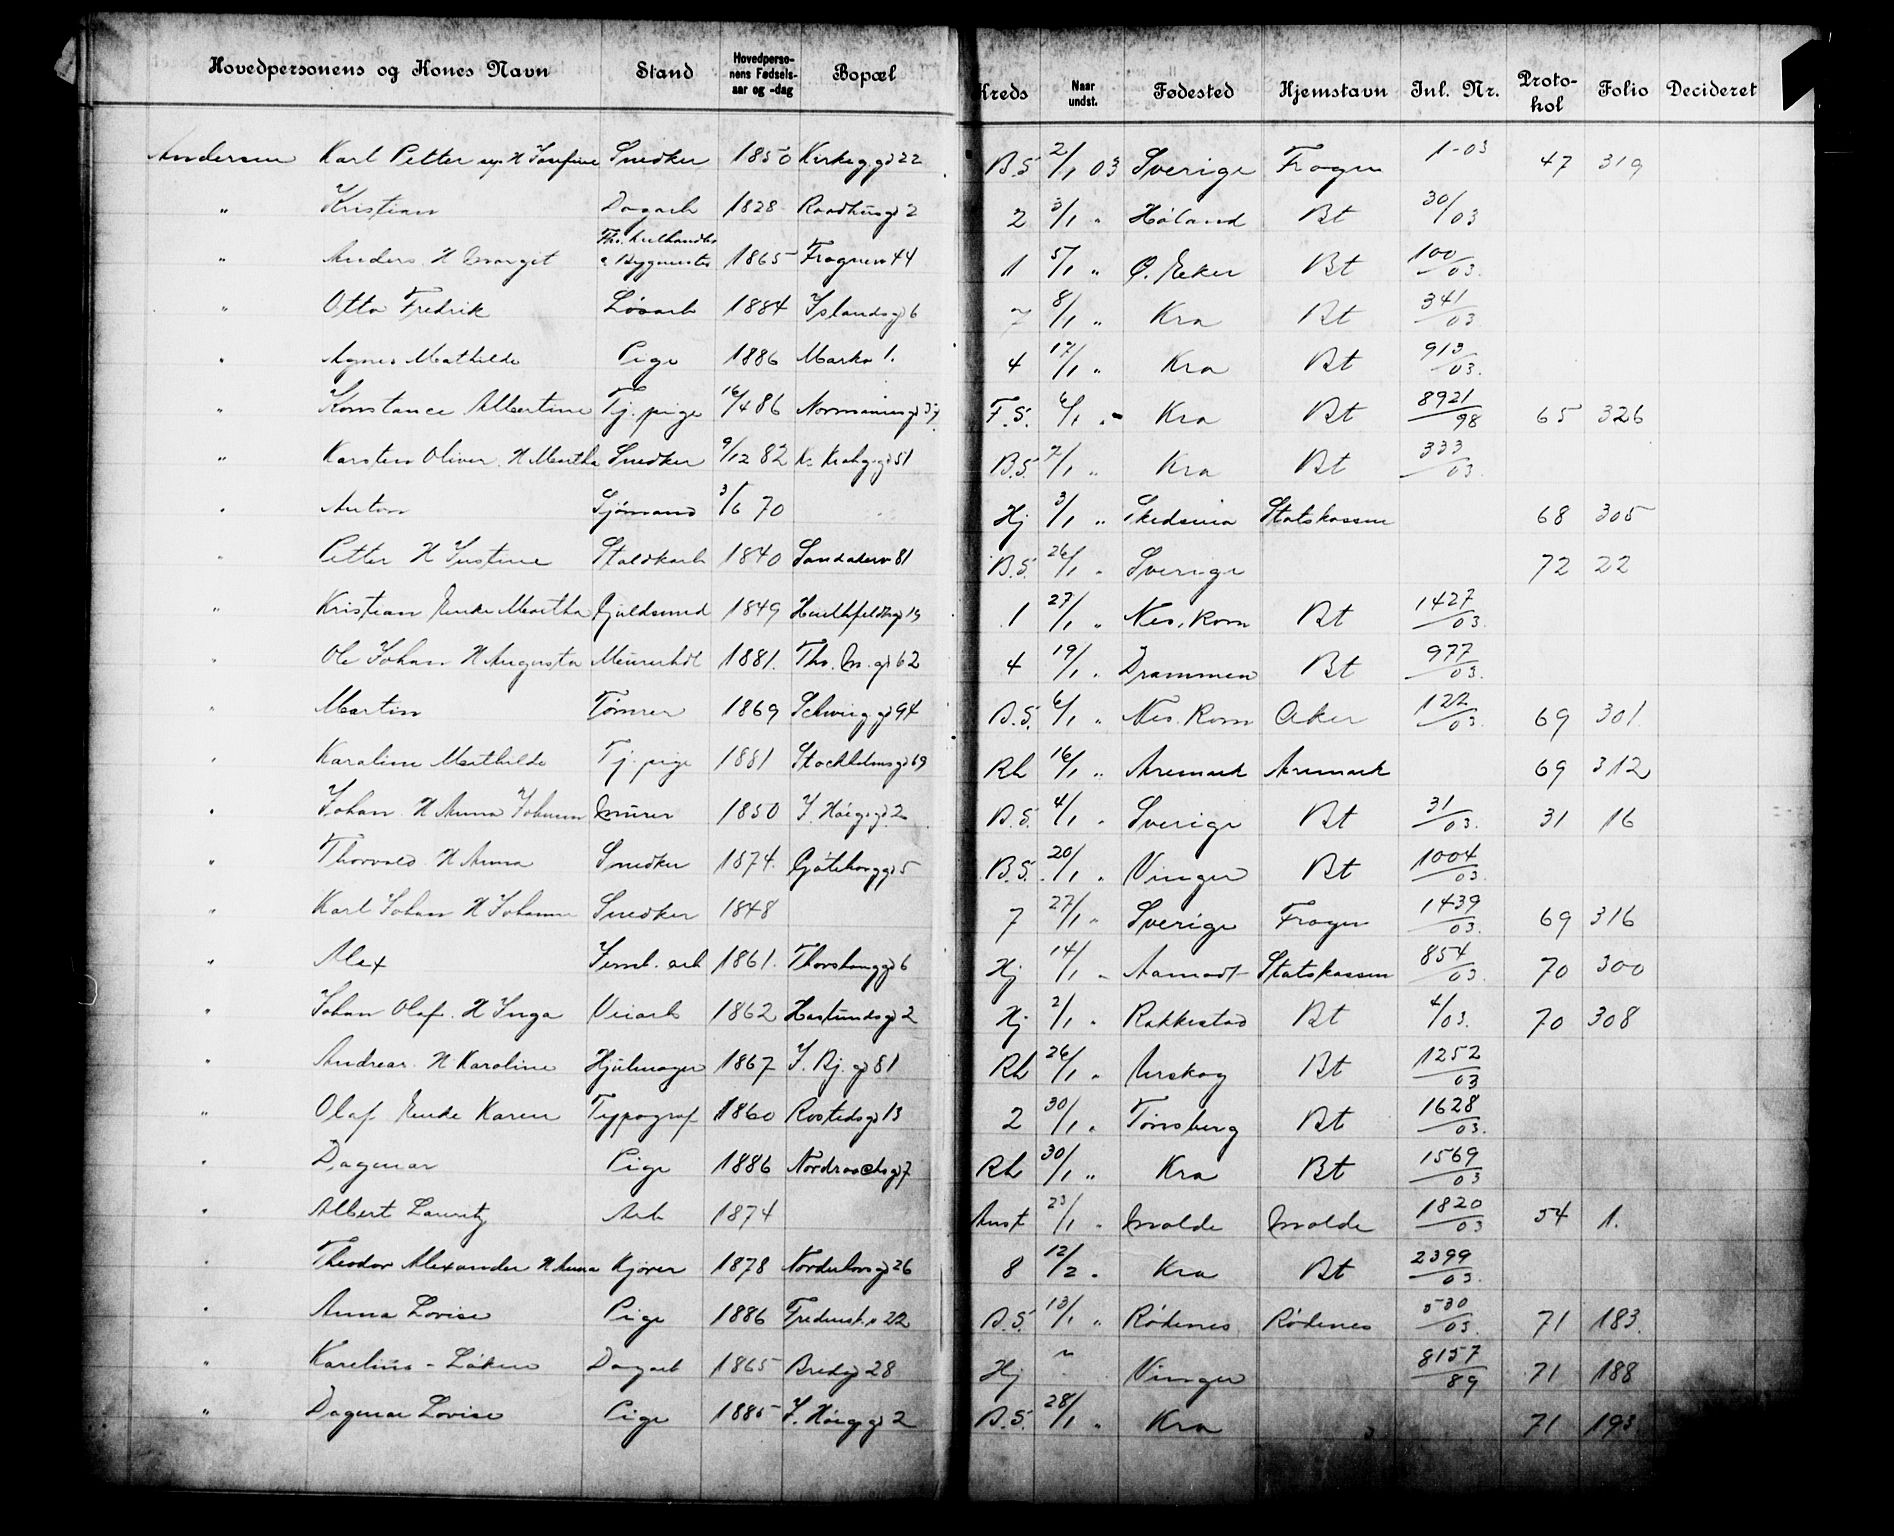 Hovedpersonens og Kones Navn Stand Hovedpersonens Fødselsaar og -dag Bopæl Kreds Naar undst. Fødested Hjemstavn Inl. Nr. Protokol Folio Decideret
Andersen Karl Petter H Josefine Snedker 1850 Kirkeg.gd 22 B.S 2/1 03 Sverige Frogn 1-03 47 319
" Kristian Dagarb 1828 Raadhusgd 2 2 3/1 " Høland Bt 30/03
" Anders H Bygmester 1865 Frognerv 44 1 5/1 " Ø. Eker Bt 100/03
" Otto Fredrik Løsarb 1884 Islandsgd 6 7 8/1 " Kra Bt 341/03
" Agnes Mathilde Pige 1886 Markv 1. 4 17/1 " Kra Bt 913/03
" Konstance Albertine Tj. pige 16/4 86 F.S. 6/1 " Kra Bt 8921/98 65 326
" Karsten Oliver H Martha Snedker 9/12 82 51 B.S 7/1 " Kra Bt 333/03
" Anton Sjømand 3/6 70 Hj 3/1 " Skedsmo Statskassen 68 305
" Petter H Justine Staldkarl 1840 Sandakerv 81 B.S. 26/1 " Sverige 72 22
" Kristian Enke Martha Guldsmed 1849 19 1 27/1 " Nes. Rom Bt 1427/03
" Ole Johan H Augusta Murerhdl 1881. Ths. M. gd 62 4 19/1 " Drammen Bt 977/03
" Martin Tømrer 1869 Schweig.gd 94 B.S. 6/1 " Nes. Rom Aker 122/03 69 301
" Karoline Mathilde Tj. pige 1881 Stockholmsgd 69 Rh 16/1 " Aremark Aremark 69 312
" Johan H Anna Murer 1850 J. Høigsgd 2 B.S. 4/1 " Sverige Bt 31/03 31 16
" Thorvald H Anna Snedker 1874. Gøteborggd 5 B.S. 20/1 " Vinger Bt 1004/03
" Karl Johan H Johanne Snedker 1848 7 27/1 " Sverige Frogn 1439/03 69 316
" Alex Jernb. arb 1861. 6 Hj 14/1 " Aamodt Statskassen 854/03 70 300
" Johan Olaf. H Inga Veiarb 1862 2 Hj 2/1 " Rakkestad Bt 4/03. 70 308
" Andreas. H Karoline Hjulmager 1867 J. Bj. gd 81 Rh 26/1 " Urskog Bt 1252/03
" Olaf Enke Karen Typograf 1860 Rostedsgd 13 2 30/1 " Tønsberg Bt 1628/03
" Dagmar Pige 1886 7 Rh 30/1 " Kra Bt 1569/03
" Albert Lauritz Arb 1874 Anst 23/1 " Molde Molde 1820/03 54 1.
" Theodor Alexander H Anna Kjører 1878 26 8 12/2 " Kra Bt 2399/03
" Anna Lovise Pige 1886 22 B.S. 13/1 " Rødenes Rødenes 530/03 71 183.
" Karelius - Løken Dagarb 1865 Bredgd 28 Hj " Vinger 8157/89 71 188
" Dagmar Lovise Pige 1885 J. Høiggd 2 B.S. 28/1 " Kra 71 193